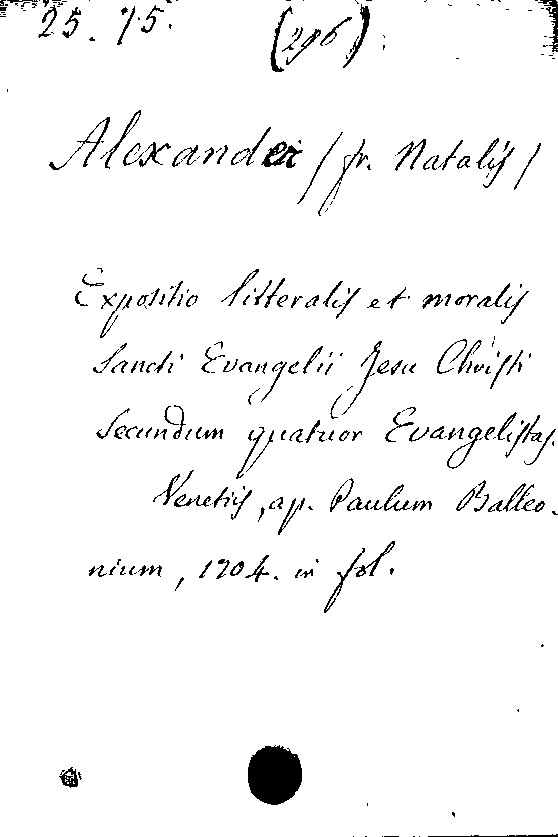 25. 75. (296).
Alexander / fr. Natalis /
Expositio litteralis et moralis
Sancti Evangelii Jesu Christi
Secundum quatuor Evangelistas.
Venetiis, ap. Paulum Balleo-
nium, 1704. in fol.